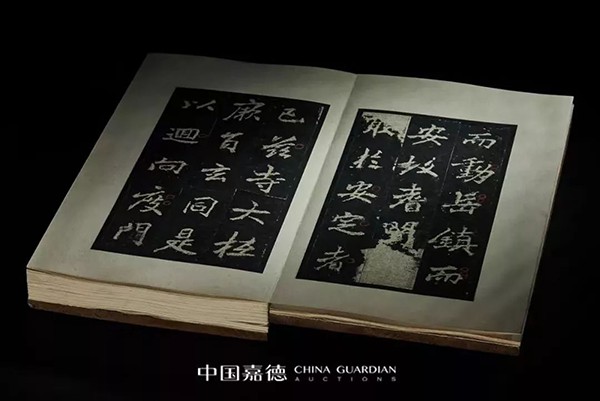 而動岳鎮而
安故耆闍
取於安定者
已茲寺大抵
厥旨玄同是
以迴向度門
中国嘉德 CHINA GUARDIAN
AUCTIONS